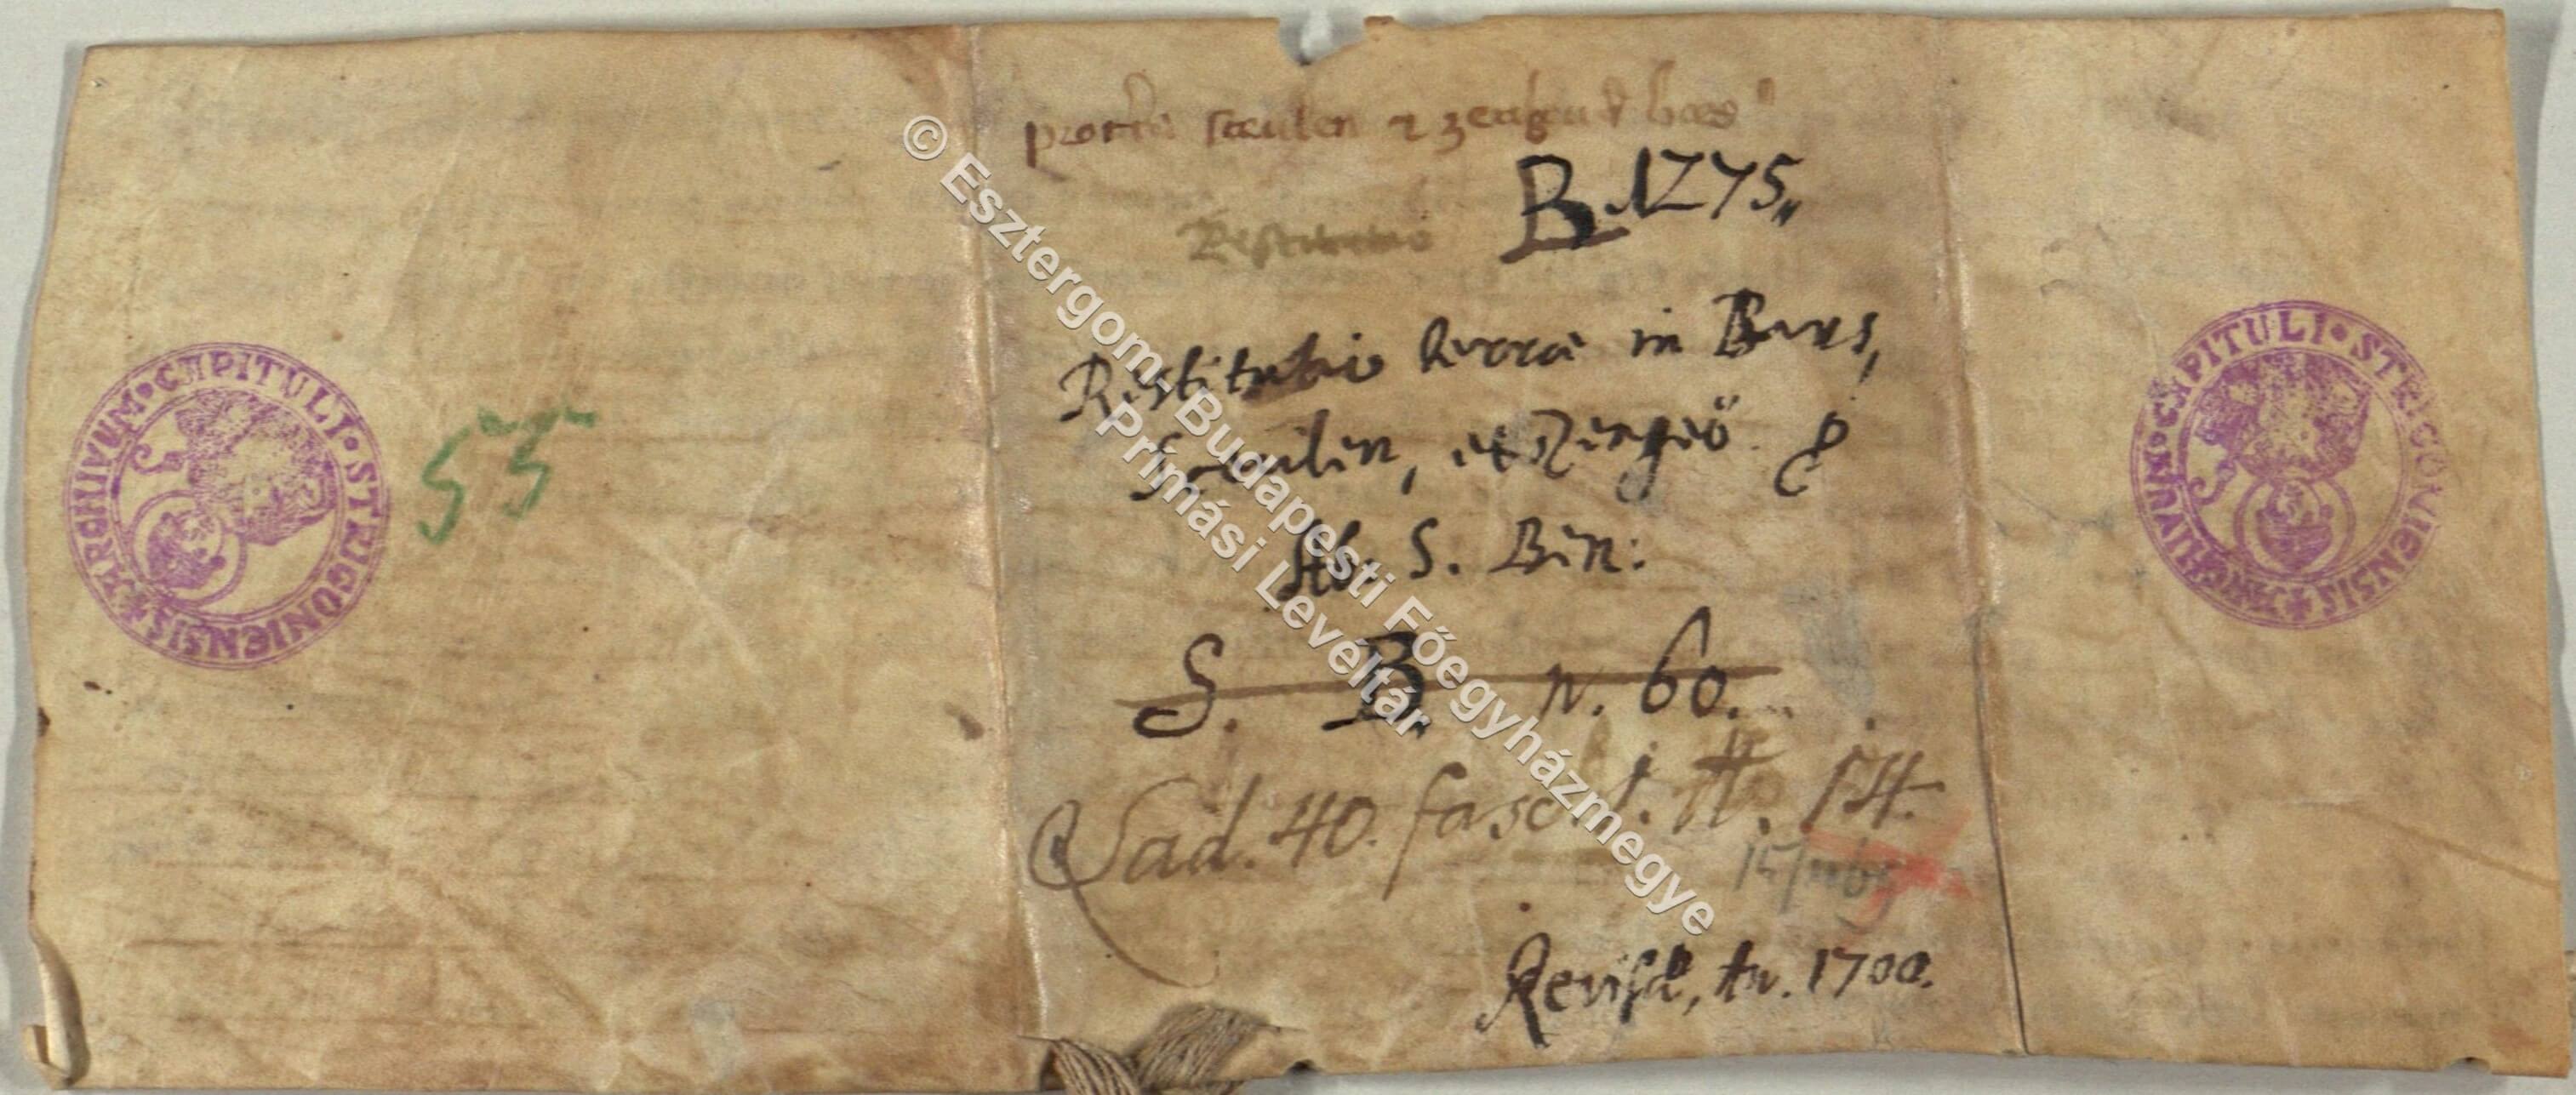 pro terra scculen & zengeu
B. 1275,,
Restitutio
Restitutio terræ in Bars,
Scculen, et Zengeö
Ab. S. Ben:
S. B. N. 60.
Lad. 40. fasc. 1. No. 14.
Revisa, An. 1700.
55
ARCHIVUM • CAPITULI • STRIGONIENSIS
ARCHIVUM • CAPITULI • STRIGONIENSIS
© Esztergom-Budapesti Főegyházmegye
Prímási Levéltár